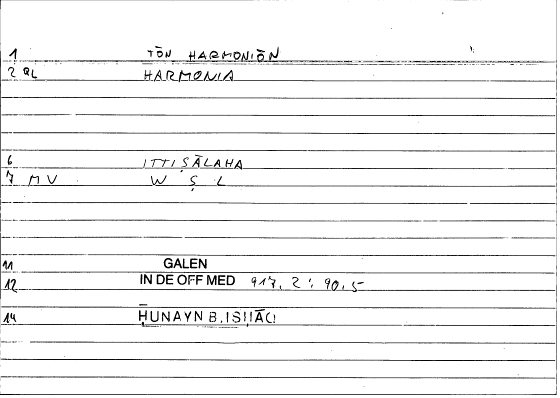 1 TŌN HARMONIŌN
2 QL HARMONIA
6 ITTIṢĀLAHA
7 MV W Ṣ L
11 GALEN
12 IN DE OFF MED 917, 2 : 90.5
14 ḤUNAYN B. ISḤĀQ